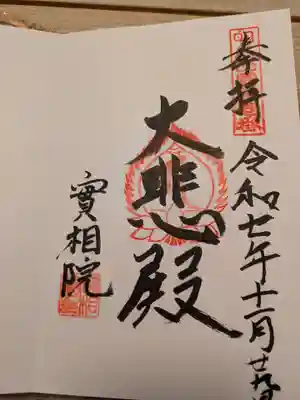 奉拝
令和七年十一月廿九日
大悲殿
實相院